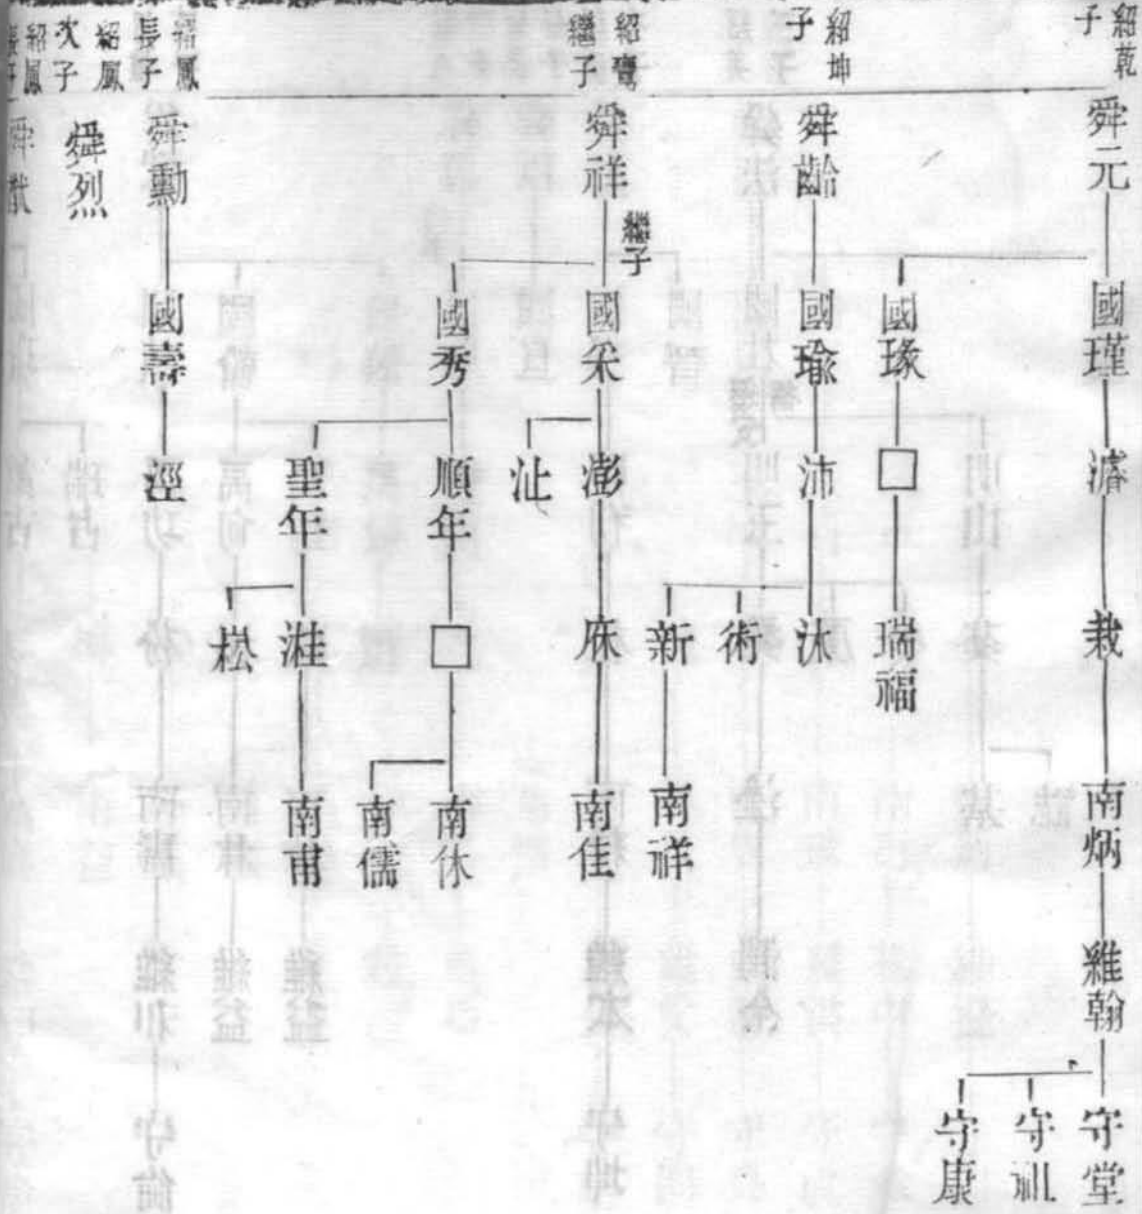 紹乾子
舜元
國瑾
濬
栽
南炳
維翰
守堂
守訕
守康
國瑑
□
瑞福
紹坤子
舜齡
國瑜
沛
沐
術
新
南祥
紹鸞繼子
舜祥
繼子
國采
澎
沚
庥
南佳
國秀
順年
□
南休
南儒
聖年
溎
松
南甫
紹鳳長子
舜勳
國壽
涇
紹鳳次子
舜烈
紹鳳
舜猷